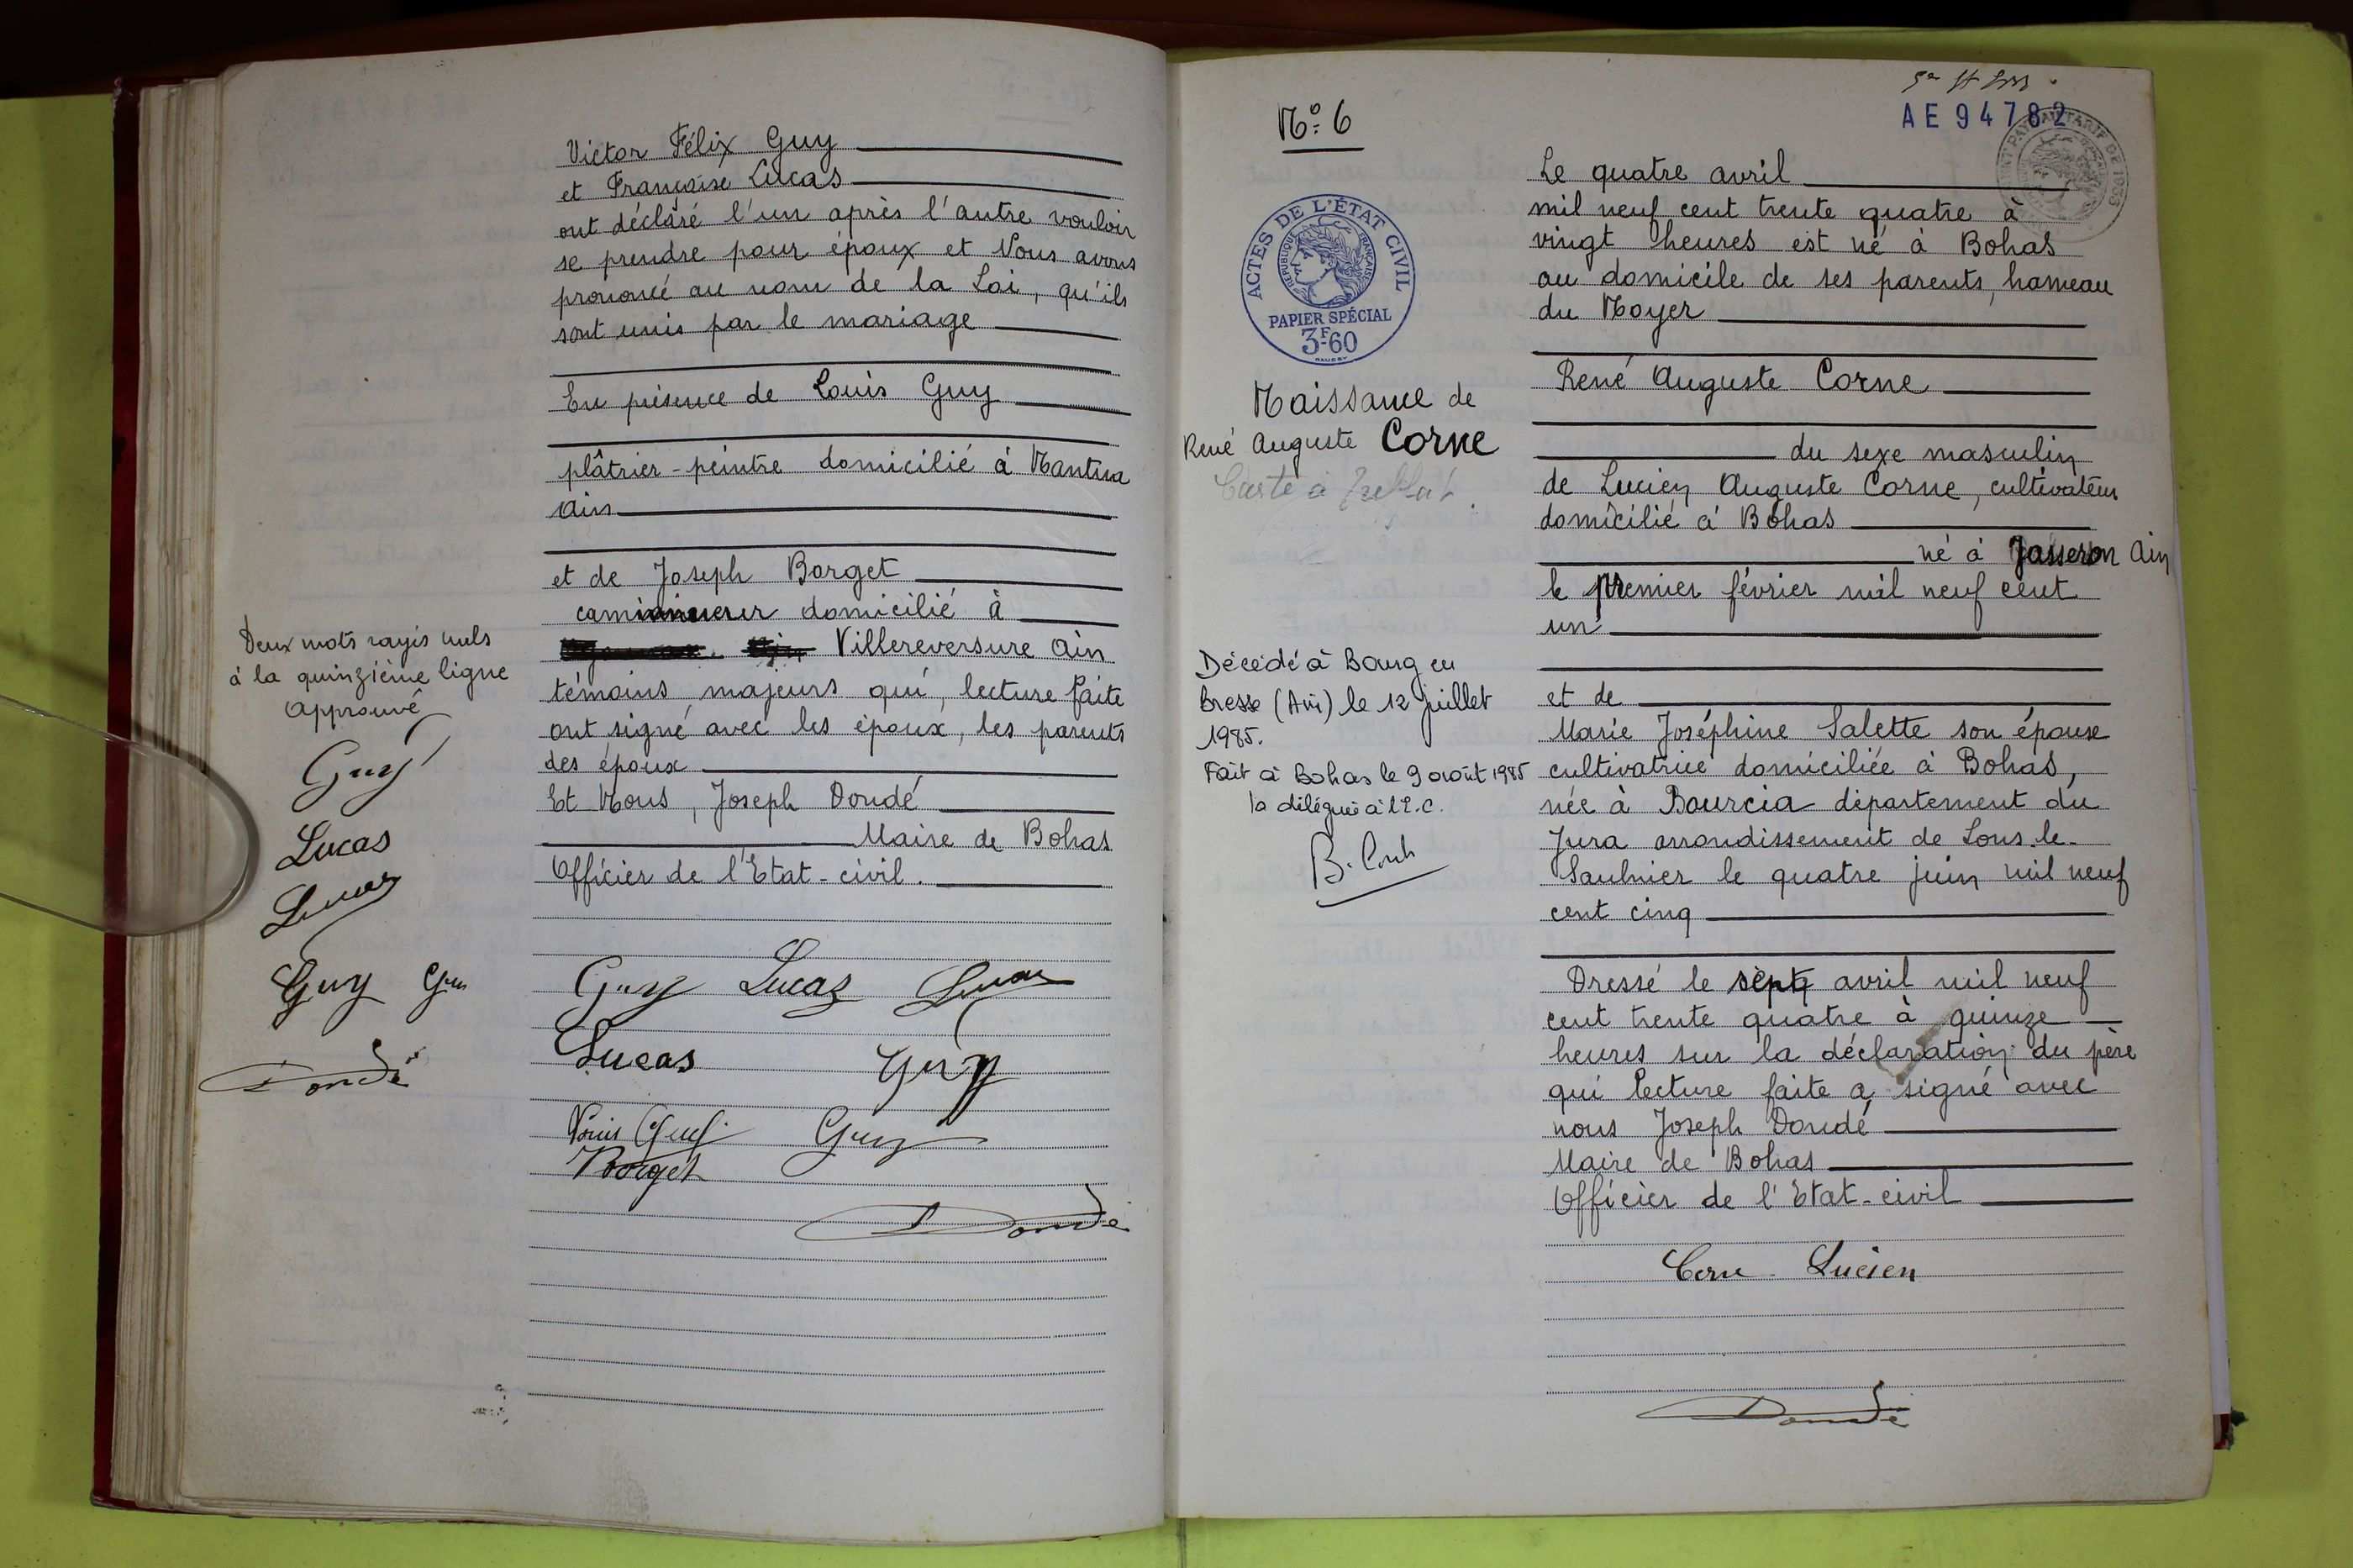 Victor Félix Guy
et Françoise Lucas
ont déclaré l'un après l'autre vouloir
se prendre pour époux et Nous avons
prononcé au nom de la Loi, qu'ils
sont unis par le mariage
En présence de Louis Guy
plâtrier-peintre domicilié à Nantua
Ain
et de Joseph Borget
camionneur domicilié à
Villereversure Ain
témoins majeurs qui, lecture faite
ont signé avec les époux, les parents
des époux
Et Nous, Joseph Doudé
Maire de Bohas
Officier de l'Etat-civil.
Deux mots rayés nuls
à la quinzième ligne
Approuvé
Guy
Lucas
Lucas
Guy Guy
Doudé
Guy Lucas Lucas
Lucas Guy
Louis Guy Guy
Borget
Doudé
AE94782
No 6
ACTES DE L'ÉTAT CIVIL
RÉPUBLIQUE FRANÇAISE
PAPIER SPÉCIAL
3F.60
Naissance de
René Auguste Corne
Décédé à Bourg en
Bresse (Ain) le 12 juillet
1985.
Fait à Bohas le 9 août 1985
la déléguée à l'E.C.
Le quatre avril
mil neuf cent trente quatre à
vingt heures est né à Bohas
au domicile de ses parents, hameau
du Noyer
René Auguste Corne
du sexe masculin
de Lucien Auguste Corne, cultivateur
domicilié à Bohas
né à Jasseron Ain
le premier février mil neuf cent
un
et de
Marie Joséphine Salette son épouse
cultivatrice domiciliée à Bohas,
née à Bourcia département du
Jura arrondissement de Lons-le-
Saulnier le quatre juin mil neuf
cent cinq
Dressé le sept avril mil neuf
cent trente quatre à quinze
heures sur la déclaration du père
qui lecture faite a signé avec
nous Joseph Doudé
Maire de Bohas
Officier de l'Etat-civil
Corne Lucien
Doudé